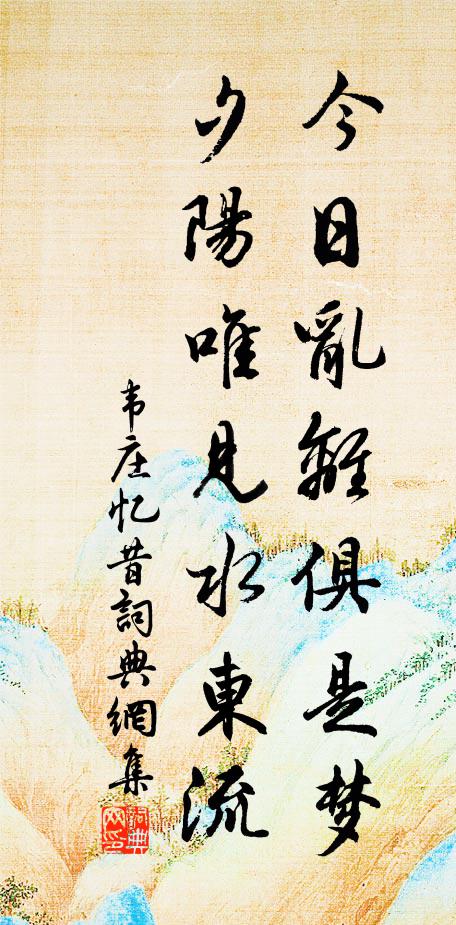 今日亂離俱是梦
夕陽唯見水東流
韦庄忆昔詞典網集
詞典
网印